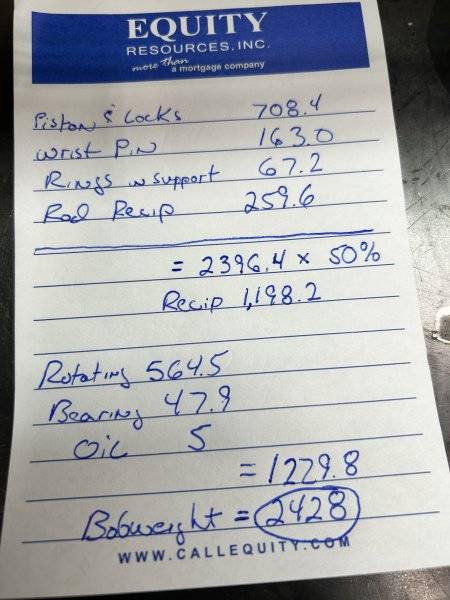 EQUITY
RESOURCES, INC.
more than
a mortgage company
Piston & Locks 708.4
Wrist Pin 163.0
Rings w support 67.2
Rod Recip 259.6
= 2396.4 x 50%
Recip 1,198.2
Rotating 564.5
Bearing 47.9
Oil 5
= 1229.8
Bobweight = 2428
WWW.CALLEQUITY.COM